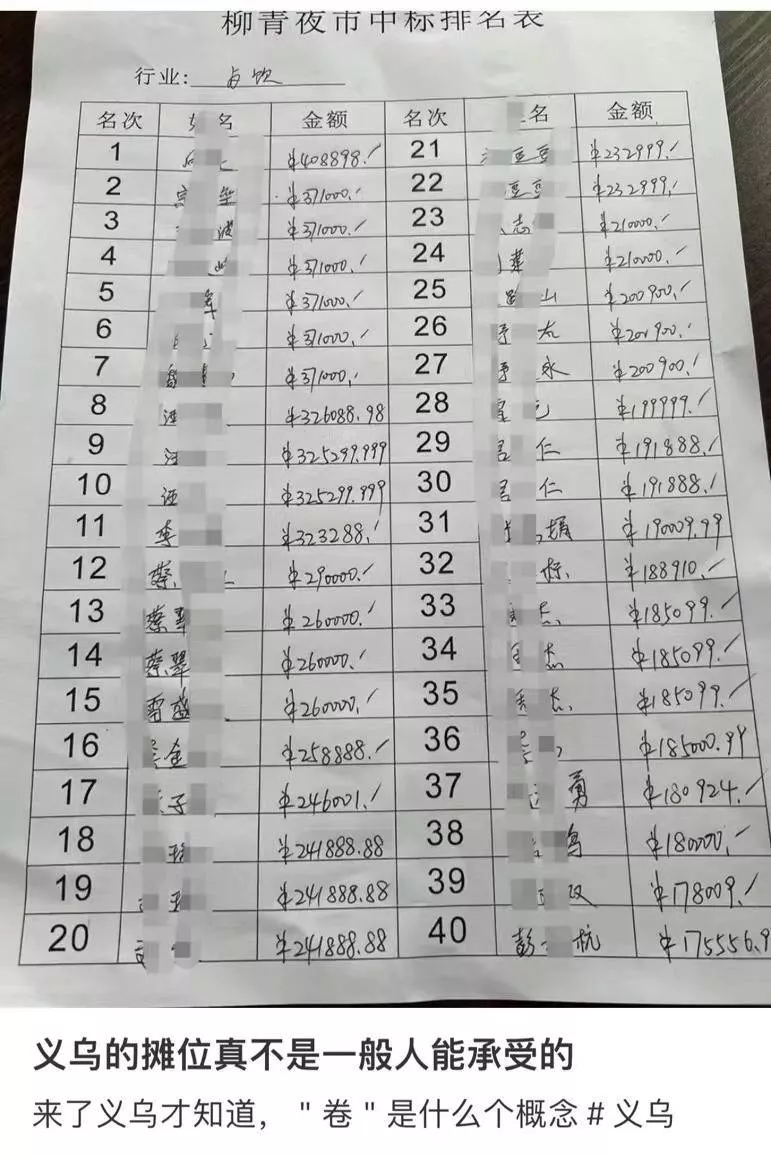 柳青夜市中标排名表
行业: 饮
名次 名 金额 名次 名 金额
1 ¥408898./ 21 豆豆 ¥232999./
2 ¥371000./ 22 豆豆 ¥232999./
3 波 ¥371000./ 23 志 ¥210000./
4 ¥371000./ 24 ¥210000./
5 ¥371000./ 25 山 ¥200900./
6 ¥371000./ 26 太 ¥200900./
7 ¥371000./ 27 永 ¥200900./
8 ¥326088.98 28 ¥199999./
9 ¥325299.999 29 仁 ¥191888./
10 ¥325299.999 30 仁 ¥191888./
11 李 ¥323288./ 31 娟 ¥190009.99
12 蔡 ¥290000./ 32 标 ¥188910./
13 蔡翠 ¥260000./ 33 杰 ¥185099./
14 蔡翠 ¥260000./ 34 杰 ¥185099./
15 雷 ¥260000./ 35 杰 ¥185099./
16 金 ¥258888./ 36 ¥185000.99
17 子 ¥246001./ 37 勇 ¥180924./
18 ¥241888.88 38 ¥180000./
19 ¥241888.88 39 双 ¥178009./
20 ¥241888.88 40 彭 杭 ¥175556.9
义乌的摊位真不是一般人能承受的
来了义乌才知道，"卷"是什么个概念#义乌